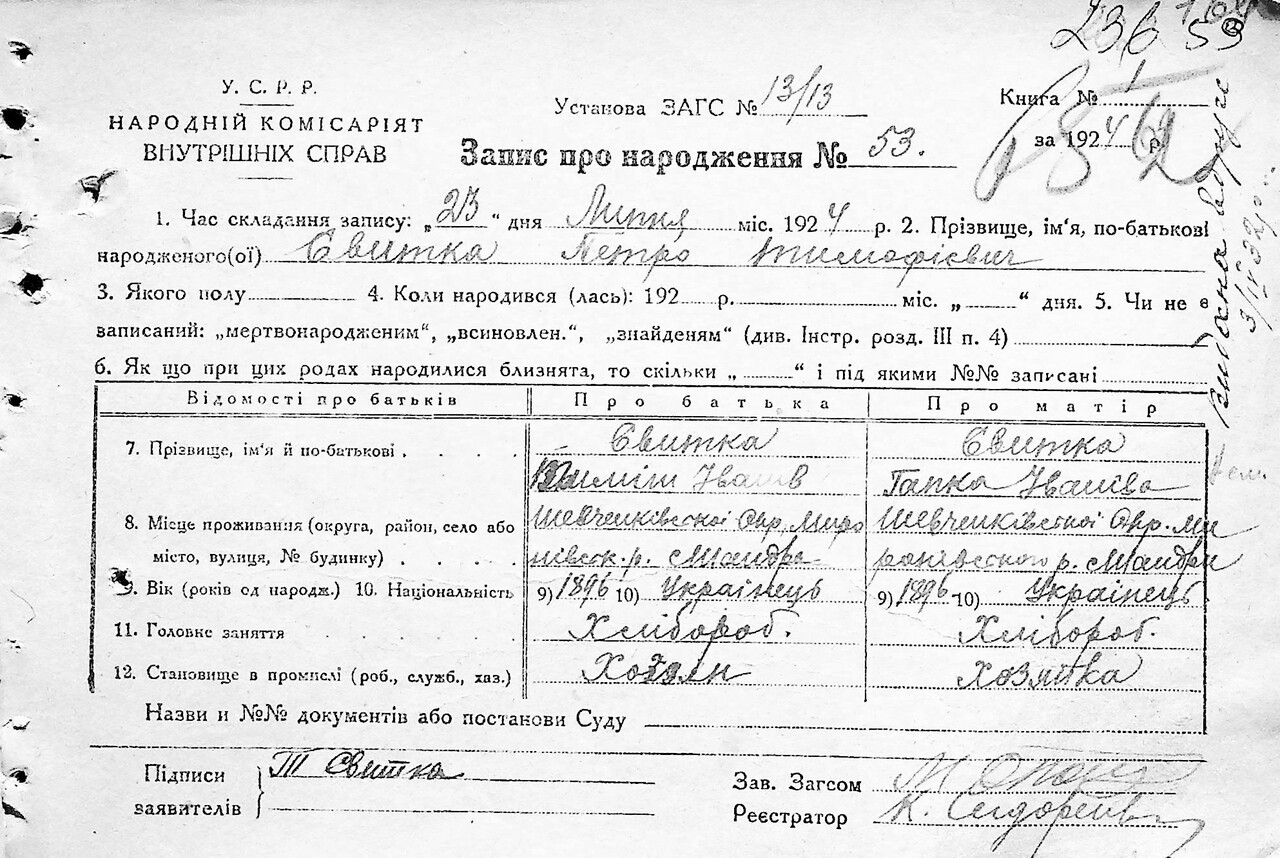 236 53
У. С. Р. Р.
НАРОДНІЙ КОМІСАРІЯТ
ВНУТРІШНІХ СПРАВ
Установа ЗАГС № 13/13
Книга № 1
за 1924 р.
Запис про народження № 53.
1. Час складання запису: „23“ дня Липня міс. 1924 р. 2. Прізвище, ім'я, по-батькові
народженого(ої) Свитка Петро Тимофієвич
3. Якого полу 4. Коли народився (лась): 192 р. міс. „ “ дня. 5. Чи не є
записаний: „мертвонародженим“, „всиновлен.“, „знайденям“ (див. Інстр. розд. III п. 4)
6. Як що при цих родах народилися близнята, то скільки „ “ і під якими №№ записані
Відомості про батьків Про батька Про матір
7. Прізвище, ім'я й по-батькові Свитка Свитка
Іванів Гапка Іванівва
8. Місце проживання (округа, район, село або Шевченківської Окр. Миро Шевченківської Окр. Ми
місто, вулиця, № будинку) нівськ. р. с. Мандра р. с.
9. Вік (років од народж.) 10. Національність 9) 1896 10) Українець 9) 1896 10) Українець
11. Головне заняття Хлібороб. Хлібороб.
12. Становище в промислі (роб., служб., хаз.) Хозяин Хозяйка
Назви и №№ документів або постанови Суду
Підписи Т Свитка
заявителів
Зав. Загсом М
Реєстратор К.
Видана вдруге
3/IV 32 р.